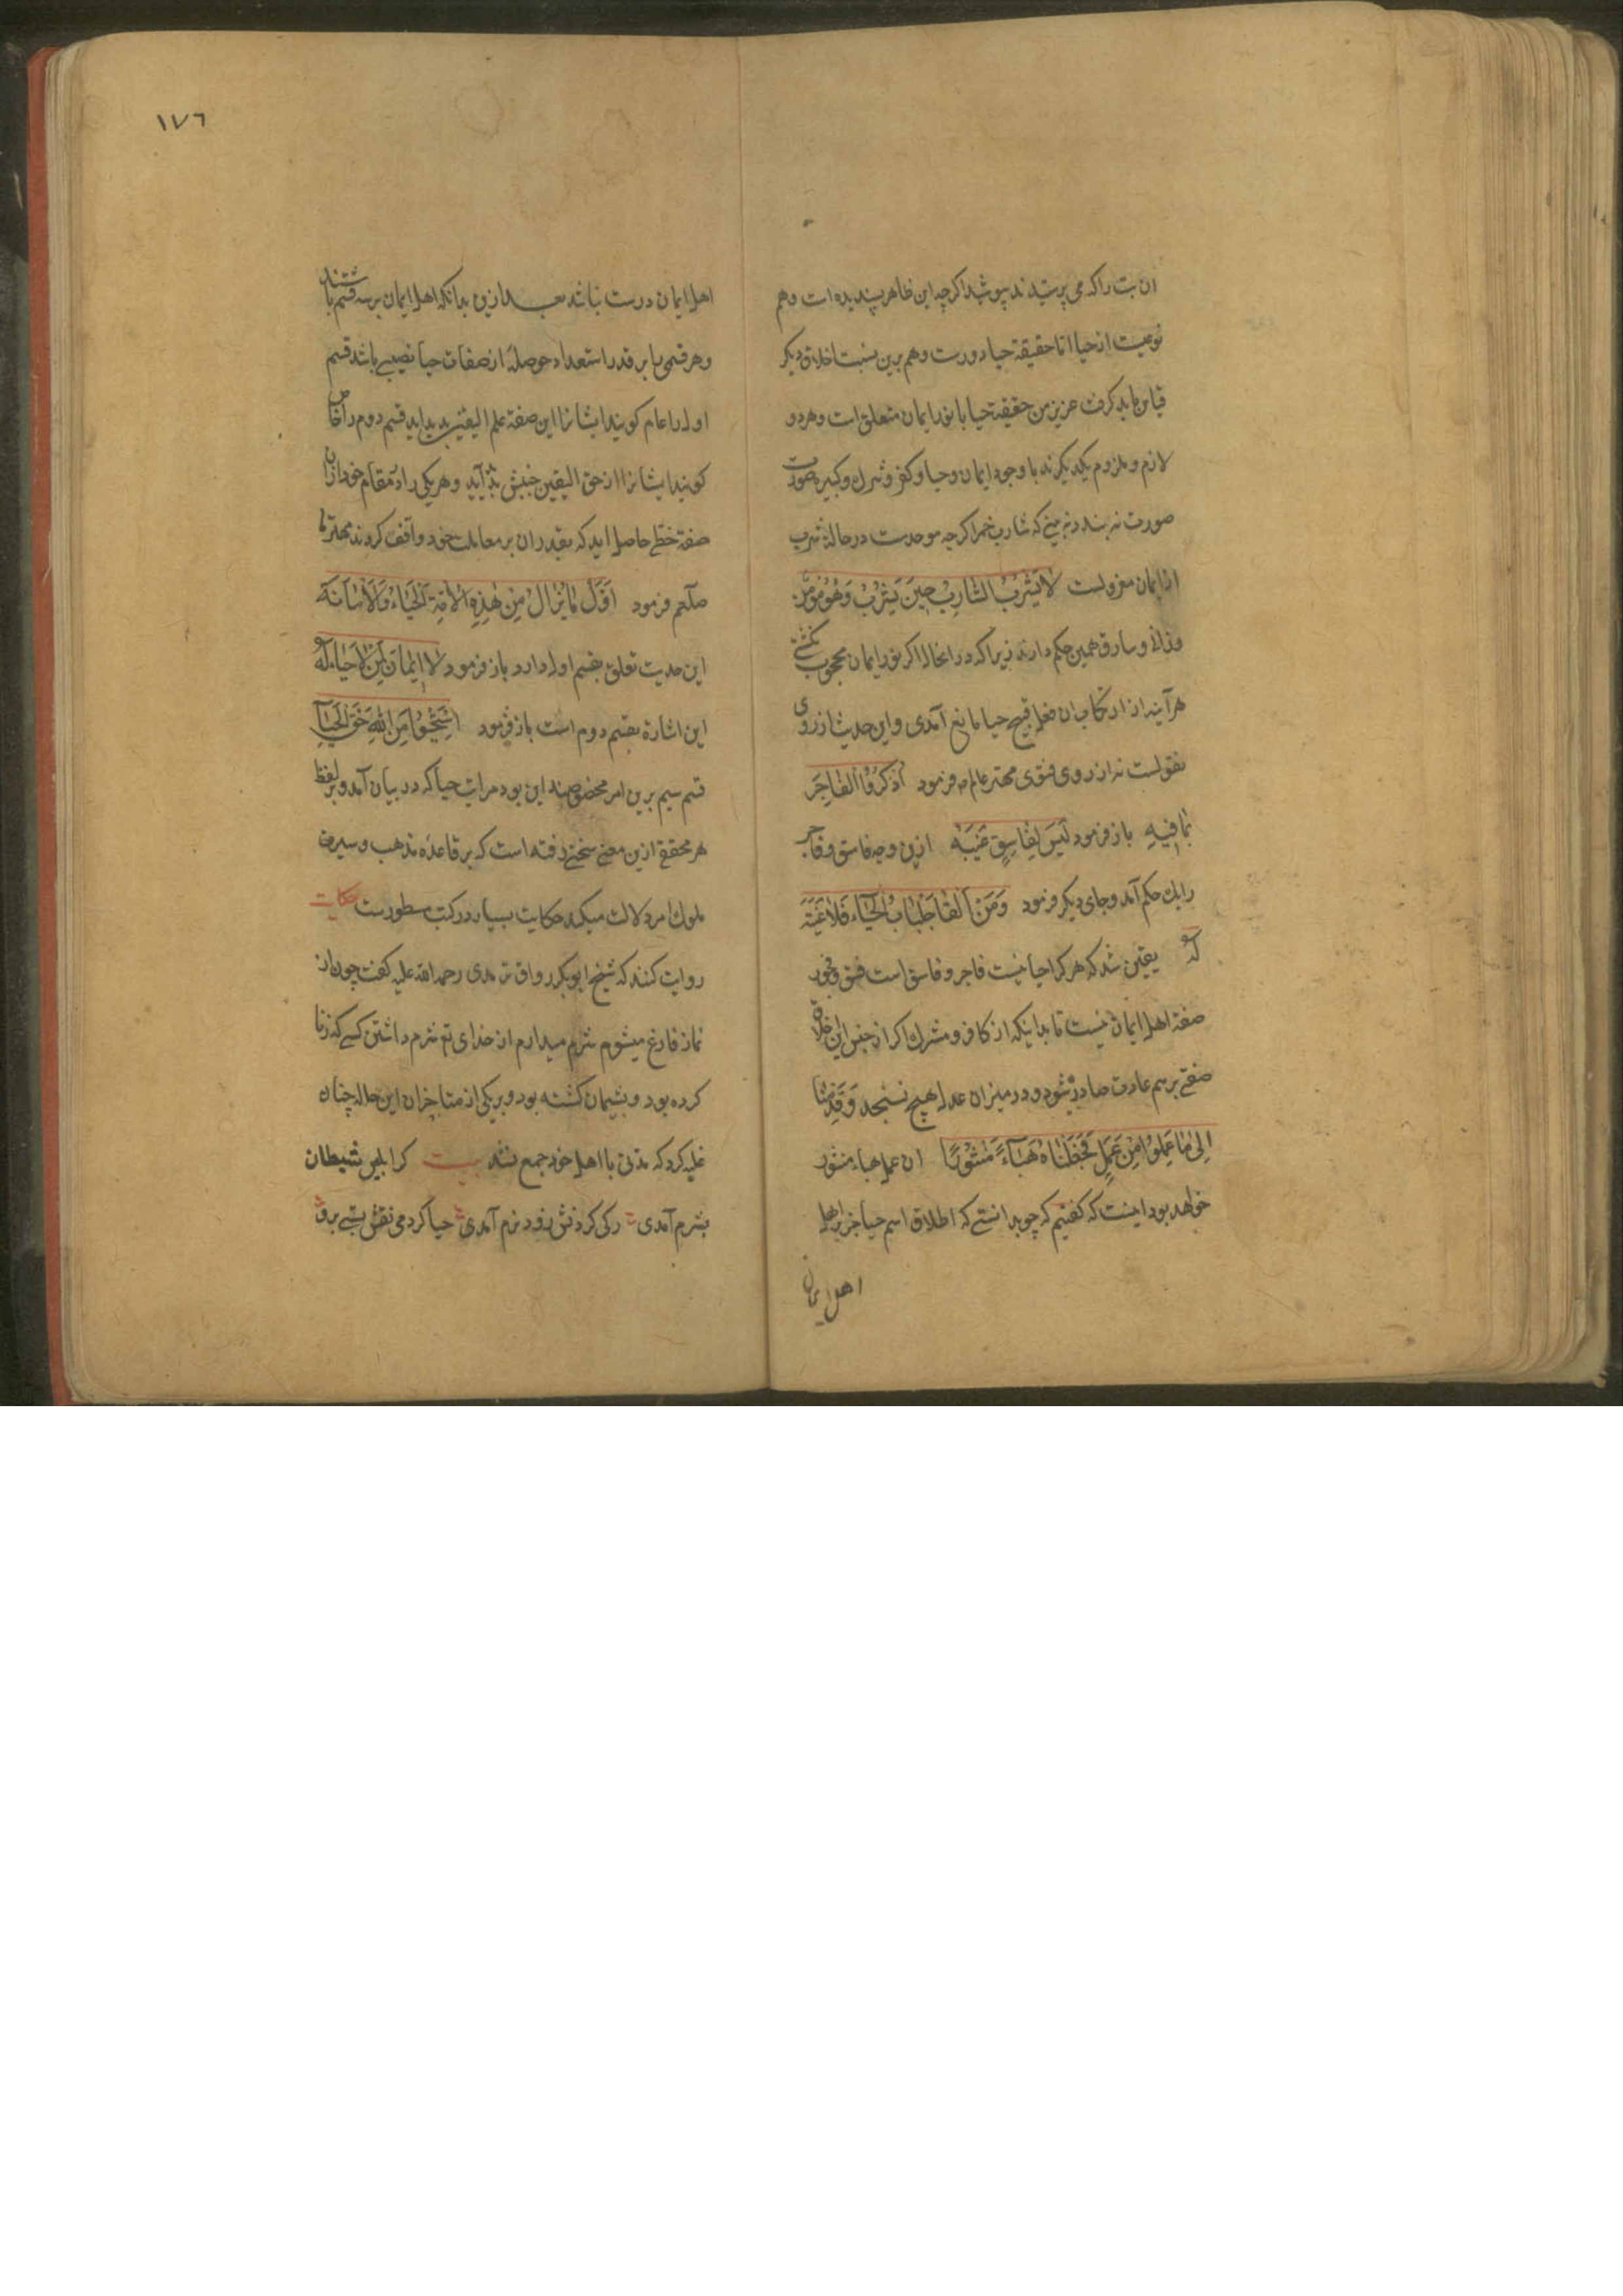 ان بت را که می پرستیدند بپوشید اکرچه این ظاهر پسندیده است وهم
نوعیت از حیا اما حقیقة حیا دورست وهم برین نسبت اخلاق دیکر
قیاس باید کرفت عزیز من حقیقة حیا با نور ایمان متعلق است وهر دو
لازم وملزوم یکدیکرند با وجود ایمان وحیا وکفر وشرک وکبیره صورت
صورت نه بندد نه بینی که شارب خمر اکرچه موحدست در حالة شرب
از ایمان معزولست لا یَشْرَبُ الشارِبُ حِینَ یَشْرَبُ وَهُوَ مُؤمِن
وزانی وسارق همین حکم دارند زیرا که در انحال اکر نور ایمان محجوب نکشتی
هر آینه از ارتکاب ان فعل قبیح حیا مانع آمدی واین حدیث از روی
تقویست نه از روی فتوی مهتر عالم م فرمود اُذْکُرُوا الفاجِرَ
بما فیهِ باز فرمود لَیسَ لِفاسِقٍ غَیبَه ازین وجه فاسق وفاجر
را یک حکم آمد وجای دیکر فرمود وَمَنْ اَلْقا جَلْبابُ الْحَیاء فَلا غَیبَةَ
لَهُ یقین شد که هر کرا حیا نیست فاجر وفاسق است فسق وفجور
صفة اهل ایمان نیست تا بدانیکه از کافر ومشرک اکر از جنس این اخلاق
صفتی برسم عادت صادر شود ودر میزان عدل هیچ نسنجد وَقَدِمْنا
اِلی ما عَمِلُوا مِنْ عَمَلٍ فَجَعَلْناهُ هَبَآءً مَنْثُورًا ان عمل هباء منثور
خواهد بود اینست که کفتیم که چو بدانستی که اطلاق اسم حیا جز بر اهل
اهل ایمان
١٧٦
اهل ایمان درست نباشد بعد ازین بدانکه اهل ایمان بر سه قسم باشند
وهر قسمی را بر قدر استعداد حوصلهٔ از صفات حیا نصیبی باشد قسم
اول را عام کویند ایشانرا این صفة علم الیقین بدید اید قسم دوم را خاص
کویند ایشانرا از حق الیقین جنبش آید وهر یکی را در مقام خود ازان
صفة حظی حاصل اید که بقدر ان بر معاملت خود واقف کردند مهتر ما
صلعم فرمود اَوَّل ما یُزال مِنْ هٰذِهِ الاُمّةِ اَلْحَیاءُ وَالاَمانَة
این حدیث تعلق بقسم اول دارد باز فرمود لا ایمانَ لِمَنْ لا حَیاءَ لَهُ
این اشارة بقسم دوم است باز فرمود اِسْتَحْیُوا مِنَ اللّٰهِ حَقَّ الْحَیآءِ
قسم سیم برین امر مخصوصند این بود مراتب حیا که در بیان آمد وبر لفظ
هر محقق ازین معنی سخنی رفته است که بر قاعدهٔ مذهب وسیرت
ملوک امر دلالت میکند حکایت بسیار در کتب مسطورست حکایت
روایت کنند که شیخ ابوبکر رواق ترمدی رحمه الله علیه کفت چون از
نماز فارغ میشوم شرم میدارم از خدای تع شرم داشتن کسی که زنا
کرده بود وبشیمان کشته بود وبر یکی از متاخران این حال چنان
غلبه کرد که مدتی با اهل خود جمع نشد بیت کر ابلیس شیطان
بشرم آمدی رکی کردنش زود نرم آمدی حیا کرد می نقش بستی برو